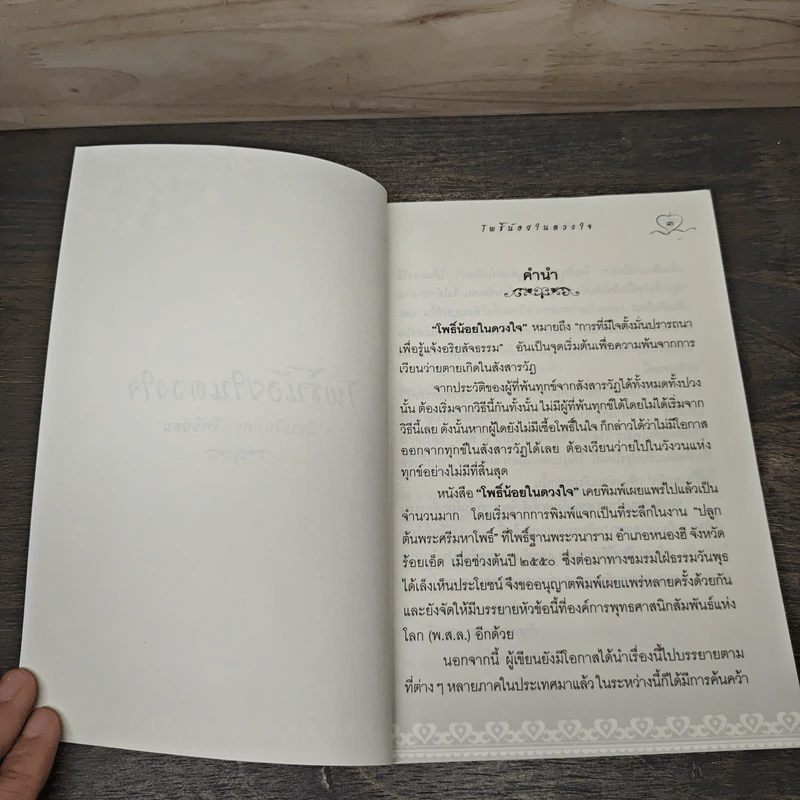 โพธิ์น้อยในดวงใจ
๓
คำนำ
"โพธิ์น้อยในดวงใจ" หมายถึง "การที่มีใจตั้งมั่นปรารถนา
เพื่อรู้แจ้งอริยสัจธรรม" อันเป็นจุดเริ่มต้นเพื่อความพ้นจากการ
เวียนว่ายตายเกิดในสังสารวัฏ
จากประวัติของผู้ที่พ้นทุกข์จากสังสารวัฏได้ทั้งหมดทั้งปวง
นั้น ต้องเริ่มจากวิธีนี้กันทั้งนั้น ไม่มีผู้ที่พ้นทุกข์ได้โดยไม่ได้เริ่มจาก
วิธีนี้เลย ดังนั้นหากผู้ใดยังไม่มีเชื้อโพธิ์ในใจ ก็กล่าวได้ว่าไม่มีโอกาส
ออกจากทุกข์ในสังสารวัฏได้เลย ต้องเวียนว่ายไปในวังวนแห่ง
ทุกข์อย่างไม่มีที่สิ้นสุด
หนังสือ "โพธิ์น้อยในดวงใจ" เคยพิมพ์เผยแพร่ไปแล้วเป็น
จำนวนมาก โดยเริ่มจากการพิมพ์แจกเป็นที่ระลึกในงาน "ปลูก
ต้นพระศรีมหาโพธิ์" ที่โพธิ์ฐานพระวนาราม อำเภอหนองฮี จังหวัด
ร้อยเอ็ด เมื่อช่วงต้นปี ๒๕๕๐ ซึ่งต่อมาทางชมรมใฝ่ธรรมวันพุธ
ได้เล็งเห็นประโยชน์ จึงขออนุญาตพิมพ์เผยแพร่หลายครั้งด้วยกัน
และยังจัดให้มีบรรยายหัวข้อนี้ที่องค์การพุทธศาสนิกสัมพันธ์แห่ง
โลก (พ.ส.ล.) อีกด้วย
นอกจากนี้ ผู้เขียนยังมีโอกาสได้นำเรื่องนี้ไปบรรยายตาม
ที่ต่าง ๆ หลายภาคในประเทศมาแล้ว ในระหว่างนี้ก็ได้มีการค้นคว้า